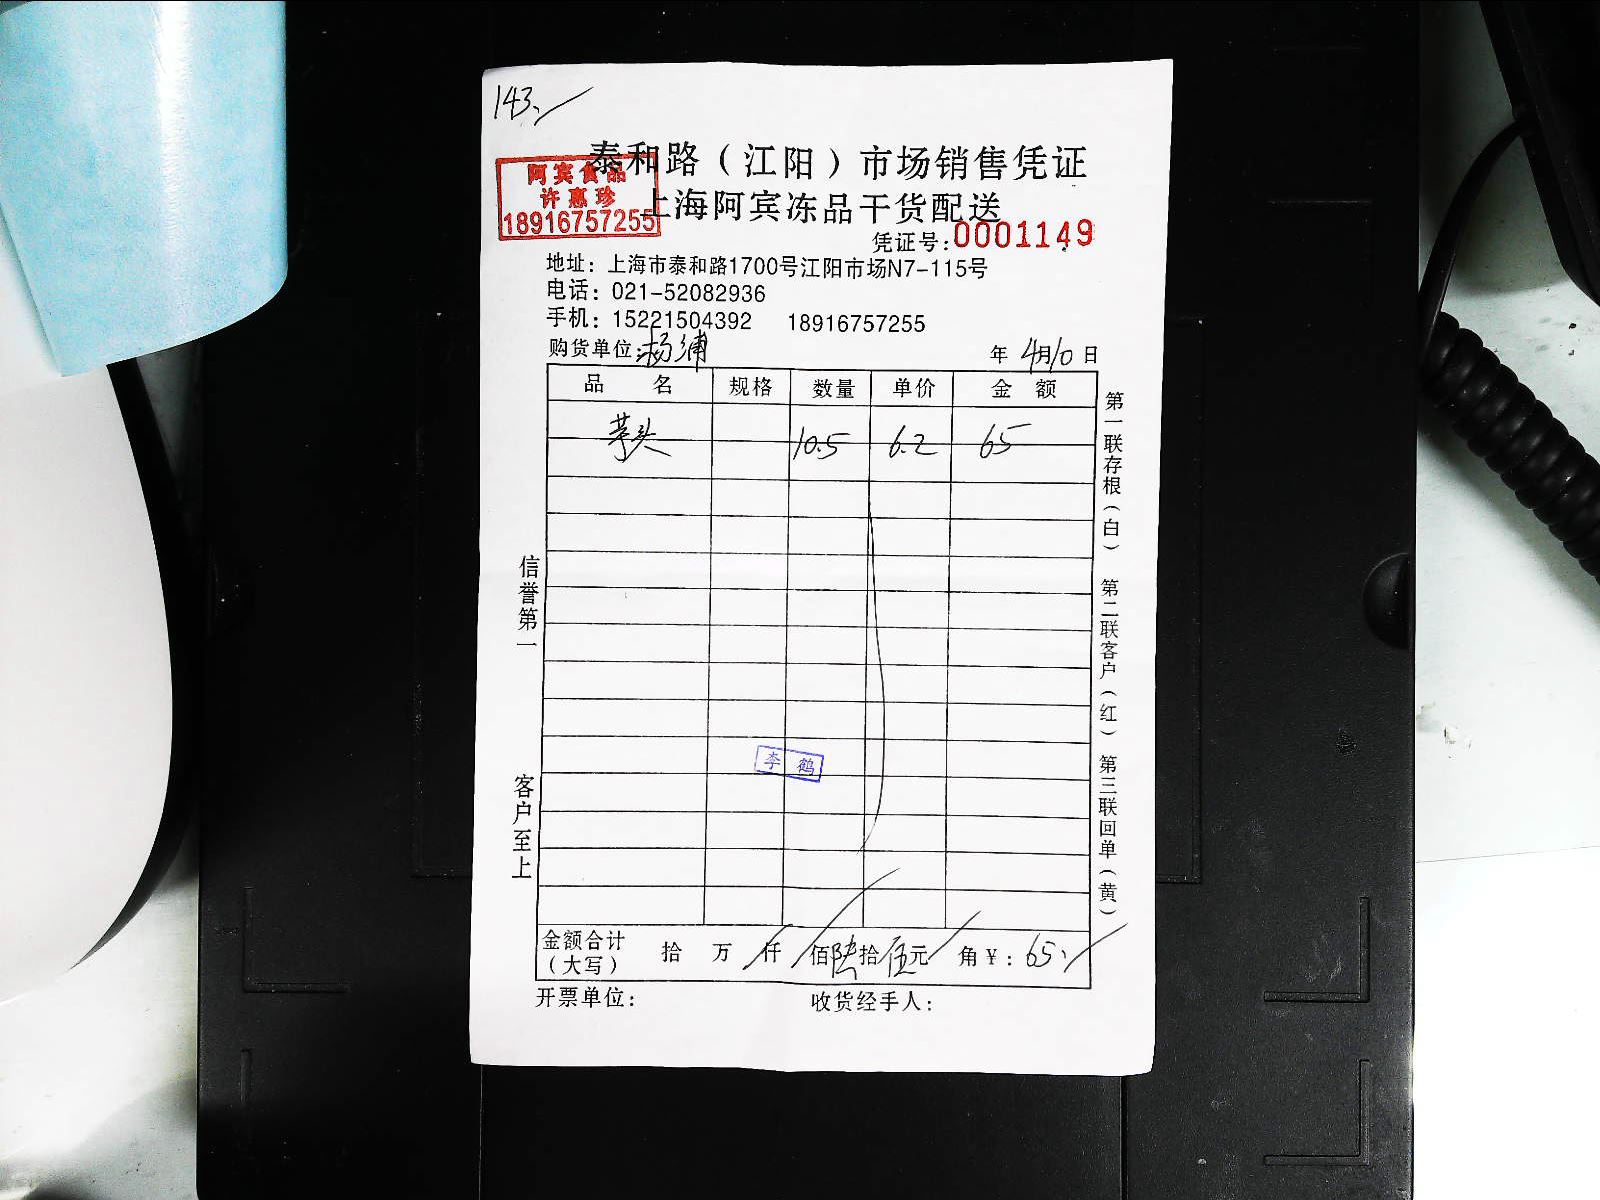 143、
泰和路（江阳）市场销售凭证
阿宾食品
许惠珍
18916757255
上海阿宾冻品干货配送
凭证号:0001149
地址：上海市泰和路1700号江阳市场N7-115号
电话：021-52082936
手机：15221504392 18916757255
购货单位:杨浦 年 4月10日
品 名 规格 数量 单价 金 额
芋头 10.5 6.2 65
信誉第一
客户至上
李 鹤
第一联存根（白） 第二联客户（红） 第三联回单（黄）
金额合计（大写） 拾 万 仟 佰陆拾伍元 角￥：65、
开票单位： 收货经手人：